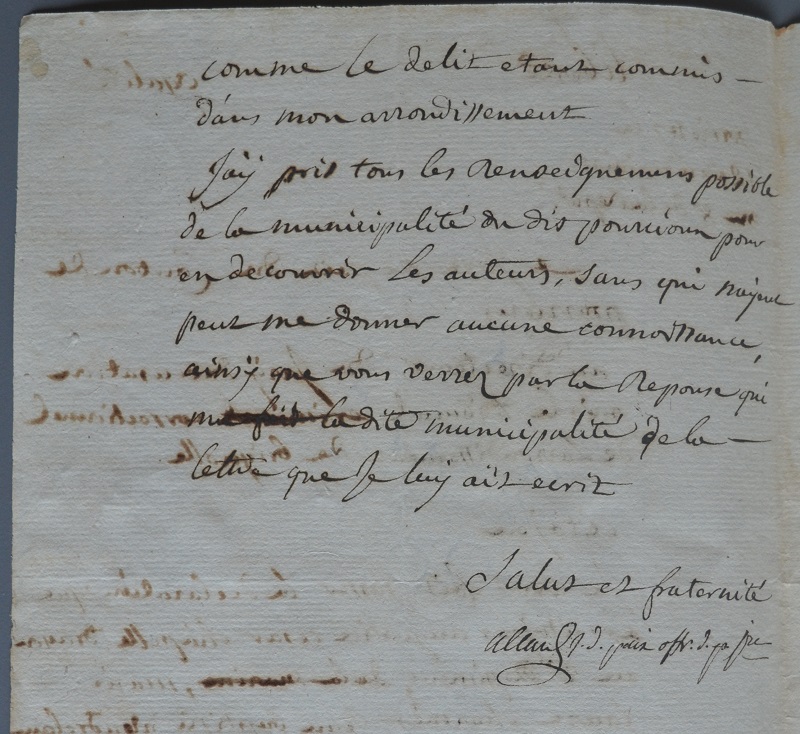 comme le delit etant commis –
dans mon arrondissement
J'aÿ pris tous les Renseignemens possible
de la municipalité du dis pourcioux pour
en decouvrir les auteurs, sans qui m'ayent
peut me donner aucune connoissance,
ainsÿ que vous verrez par la Reponse qui
la dite municipalité de la –
lettre que Je luy ait ecrit
Salut et fraternité
Allaud J. d. paix offr. d. po